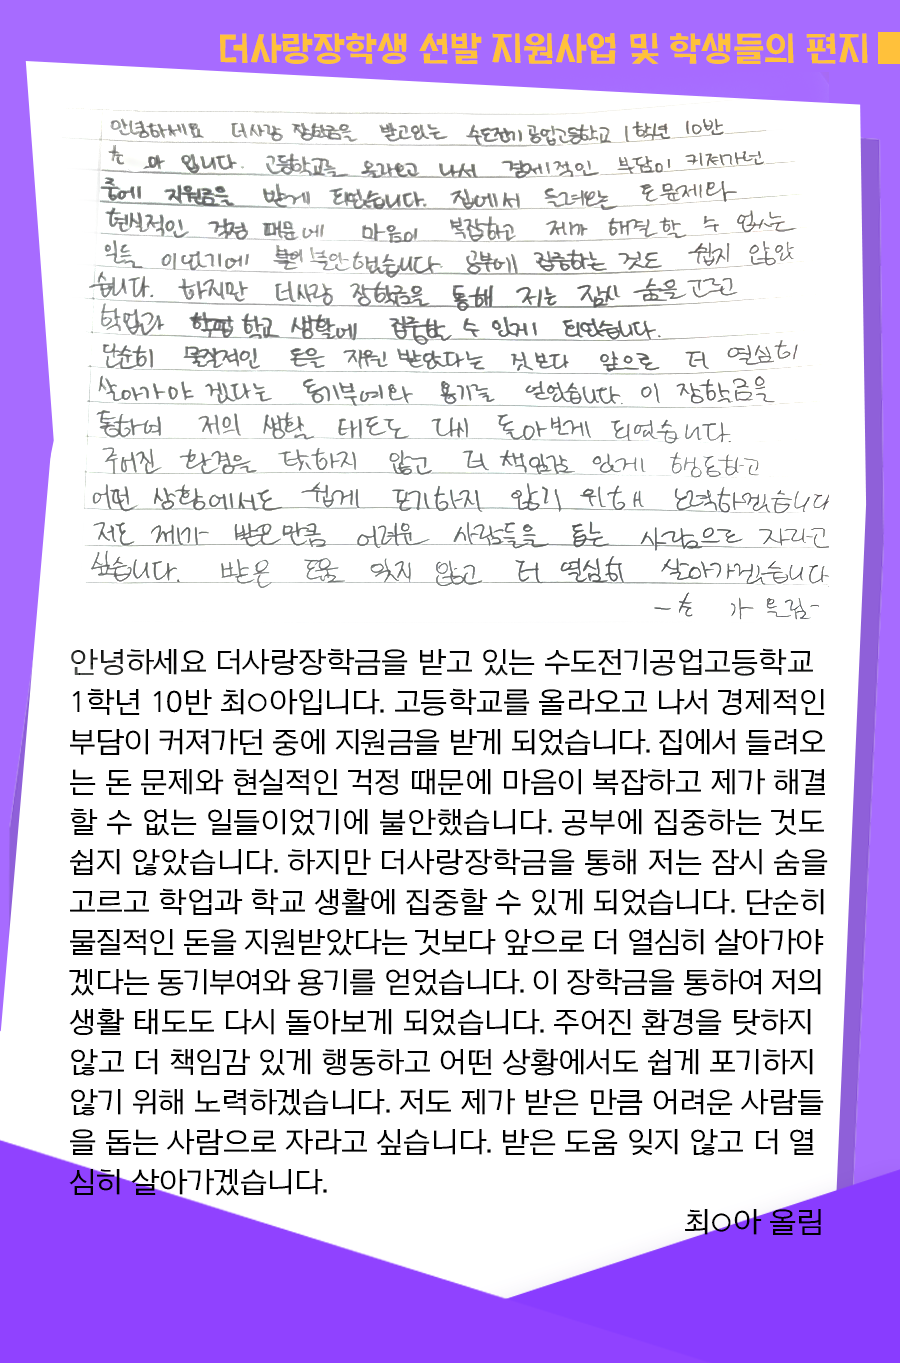 더사랑장학생 선발 지원사업 및 학생들의 편지
안녕하세요 더사랑 장학금을 받고있는 수도전기공업고등학교 1학년 10반
최 아 입니다. 고등학교를 올라오고 나서 경제적인 부담이 커져가던
중에 지원금을 받게 되었습니다. 집에서 들려오는 돈문제와
현실적인 걱정 때문에 마음이 복잡하고 제가 해결할 수 없는
일들 이었기에 불안했습니다. 공부에 집중하는 것도 쉽지 않았
습니다. 하지만 더사랑 장학금을 통해 저는 잠시 숨을 고르고
학업과 학교 생활에 집중할 수 있게 되었습니다.
단순히 물질적인 돈을 지원 받았다는 것보다 앞으로 더 열심히
살아가야 겠다는 동기부여와 용기를 얻었습니다. 이 장학금을
통하여 저의 생활 태도도 다시 돌아보게 되었습니다.
주어진 환경을 탓하지 않고 더 책임감 있게 행동하고
어떤 상황에서도 쉽게 포기하지 않기 위해 노력하겠습니다
저도 제가 받은만큼 어려운 사람들을 돕는 사람으로 자라고
싶습니다. 받은 도움 잊지 않고 더 열심히 살아가겠습니다
-최 아 올림-
안녕하세요 더사랑장학금을 받고 있는 수도전기공업고등학교
1학년 10반 최○아입니다. 고등학교를 올라오고 나서 경제적인
부담이 커져가던 중에 지원금을 받게 되었습니다. 집에서 들려오
는 돈 문제와 현실적인 걱정 때문에 마음이 복잡하고 제가 해결
할 수 없는 일들이었기에 불안했습니다. 공부에 집중하는 것도
쉽지 않았습니다. 하지만 더사랑장학금을 통해 저는 잠시 숨을
고르고 학업과 학교 생활에 집중할 수 있게 되었습니다. 단순히
물질적인 돈을 지원받았다는 것보다 앞으로 더 열심히 살아가야
겠다는 동기부여와 용기를 얻었습니다. 이 장학금을 통하여 저의
생활 태도도 다시 돌아보게 되었습니다. 주어진 환경을 탓하지
않고 더 책임감 있게 행동하고 어떤 상황에서도 쉽게 포기하지
않기 위해 노력하겠습니다. 저도 제가 받은 만큼 어려운 사람들
을 돕는 사람으로 자라고 싶습니다. 받은 도움 잊지 않고 더 열
심히 살아가겠습니다.
최○아 올림